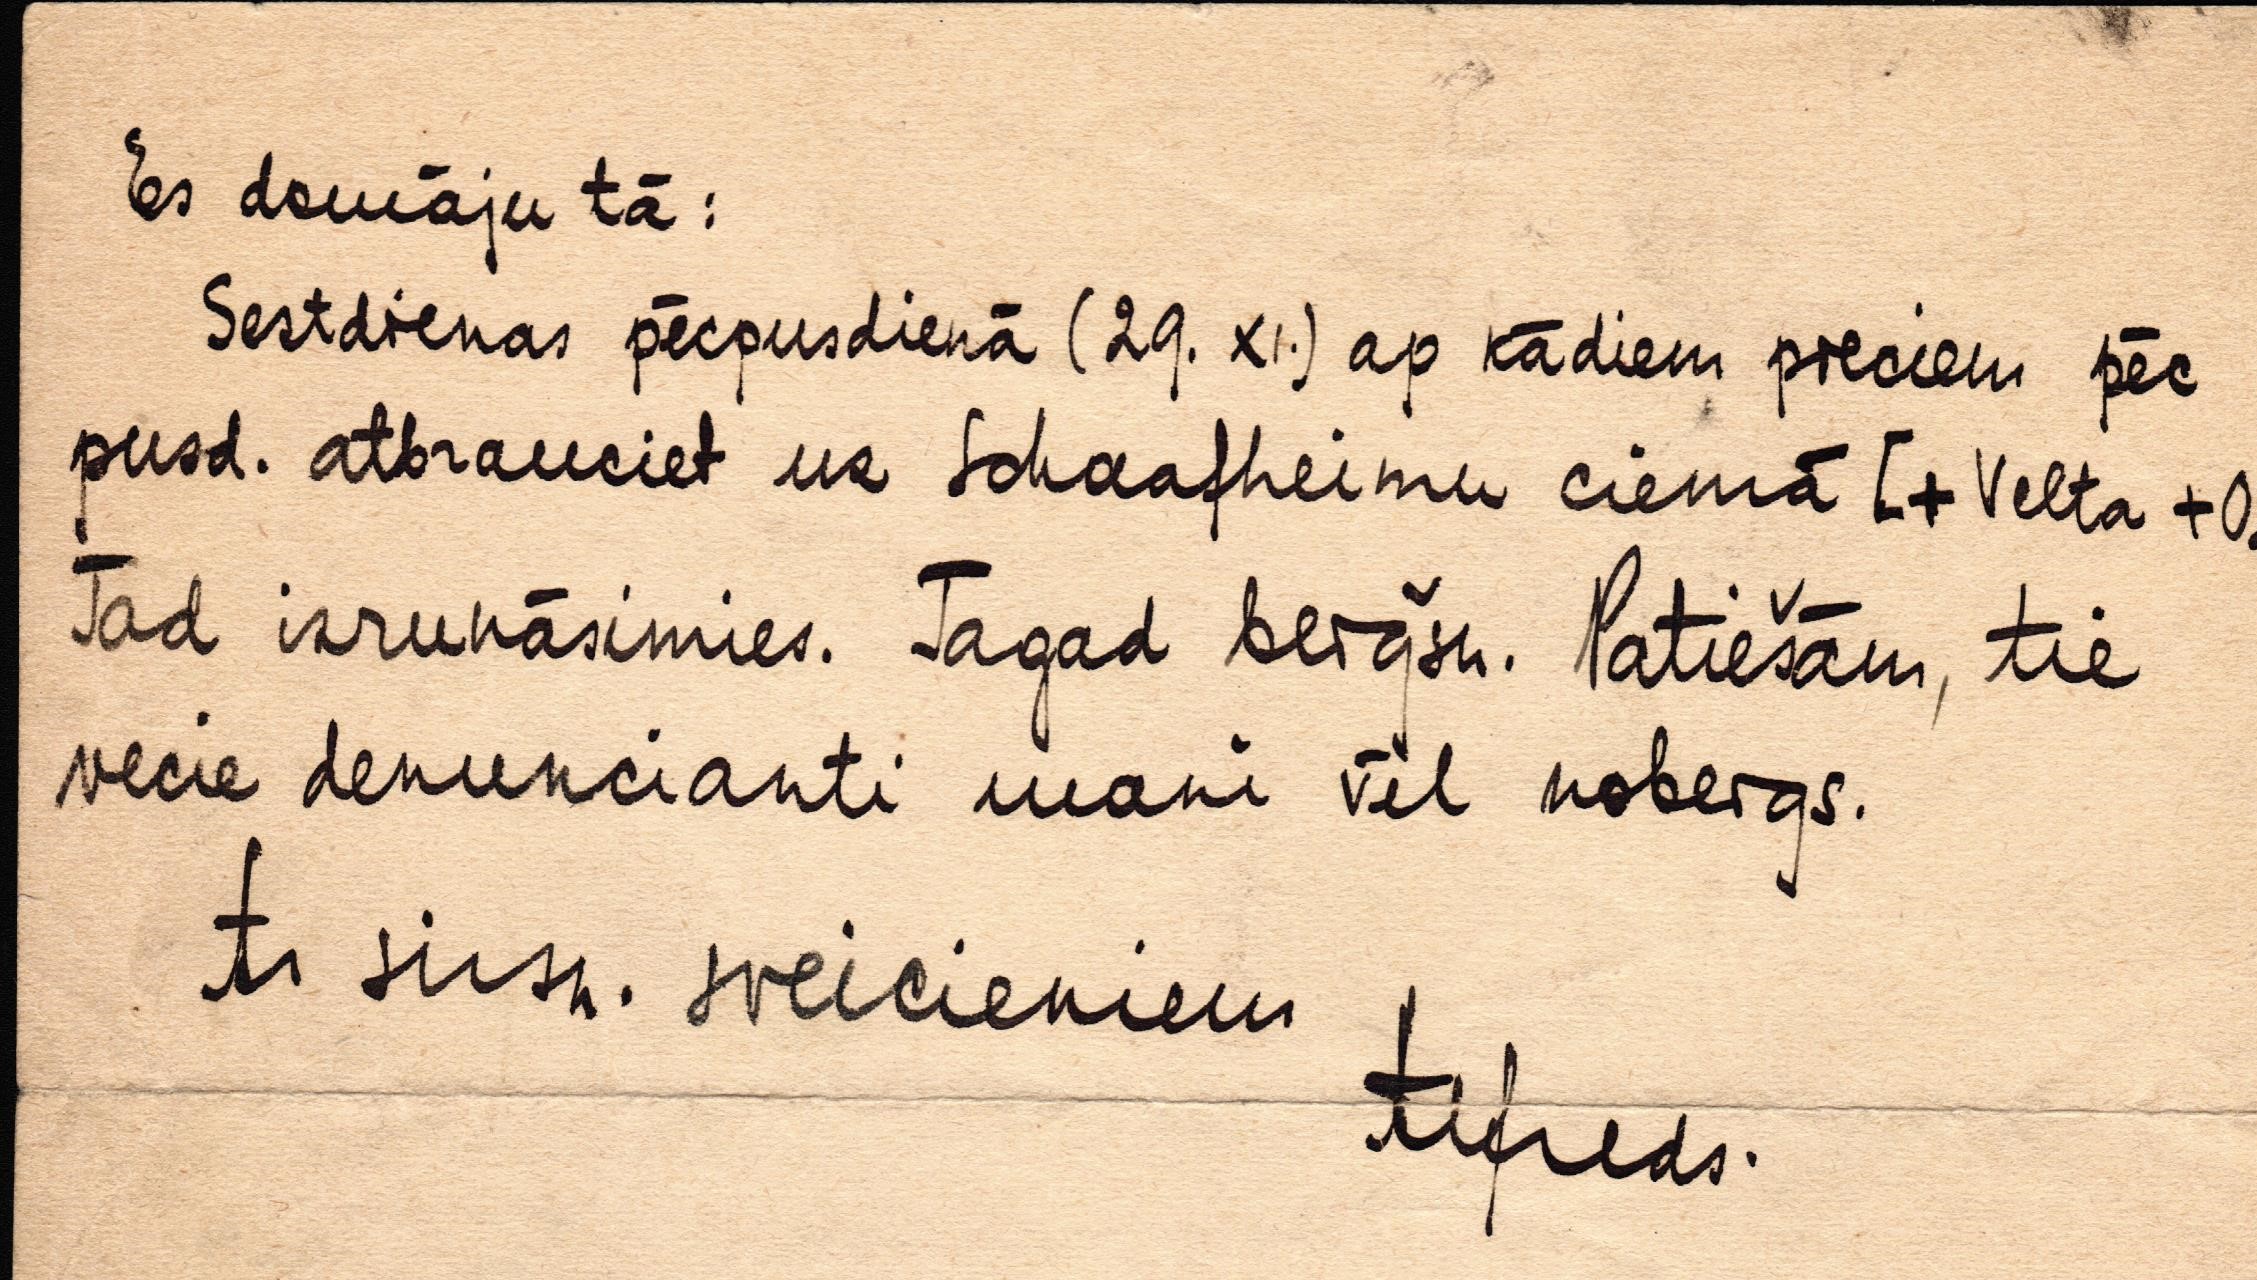 Es domāju tā:
Sestdienas pēcpusdienā (29. XI.) ap kādiem pieciem pēc
pusd. atbrauciet uz Schaafheimu ciemā [+ Velta + O.
Tad izrunāsimies. Tagad beigšu. Patiešām, tie
vecie denuncianti mani vēl nobeigs.
Ar sirsn. sveicieniem
Alfreds.